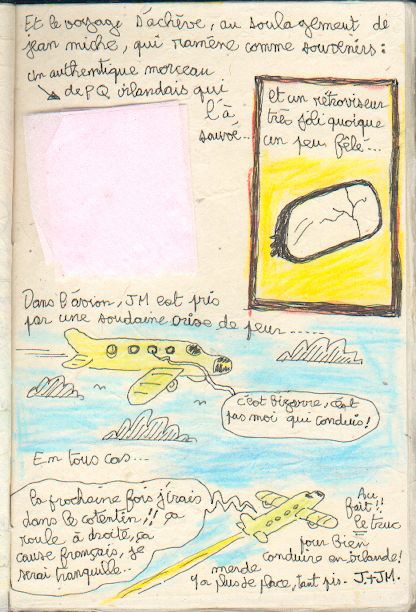 Et le voyage s'achève, au soulagement de
jean miche, qui ramène comme souvenirs :
un authentique morceau
de PQ irlandais qui
l'à
sauvé...
et un rétroviseur
très joli quoique
un peu fêlé...
Dans l'avion, JM est pris
par une soudaine crise de peur.....
c'est bizarre, c'est
pas moi qui conduis!
En tous cas...
la prochaine fois j'irais
dans le cotentin!! ça
roule à droite, ça
cause français, je
serai tranquille...
Au
fait!!
le truc
pour bien
conduire en irlande!
merde
y a plus de place, tant pis. J+JM.